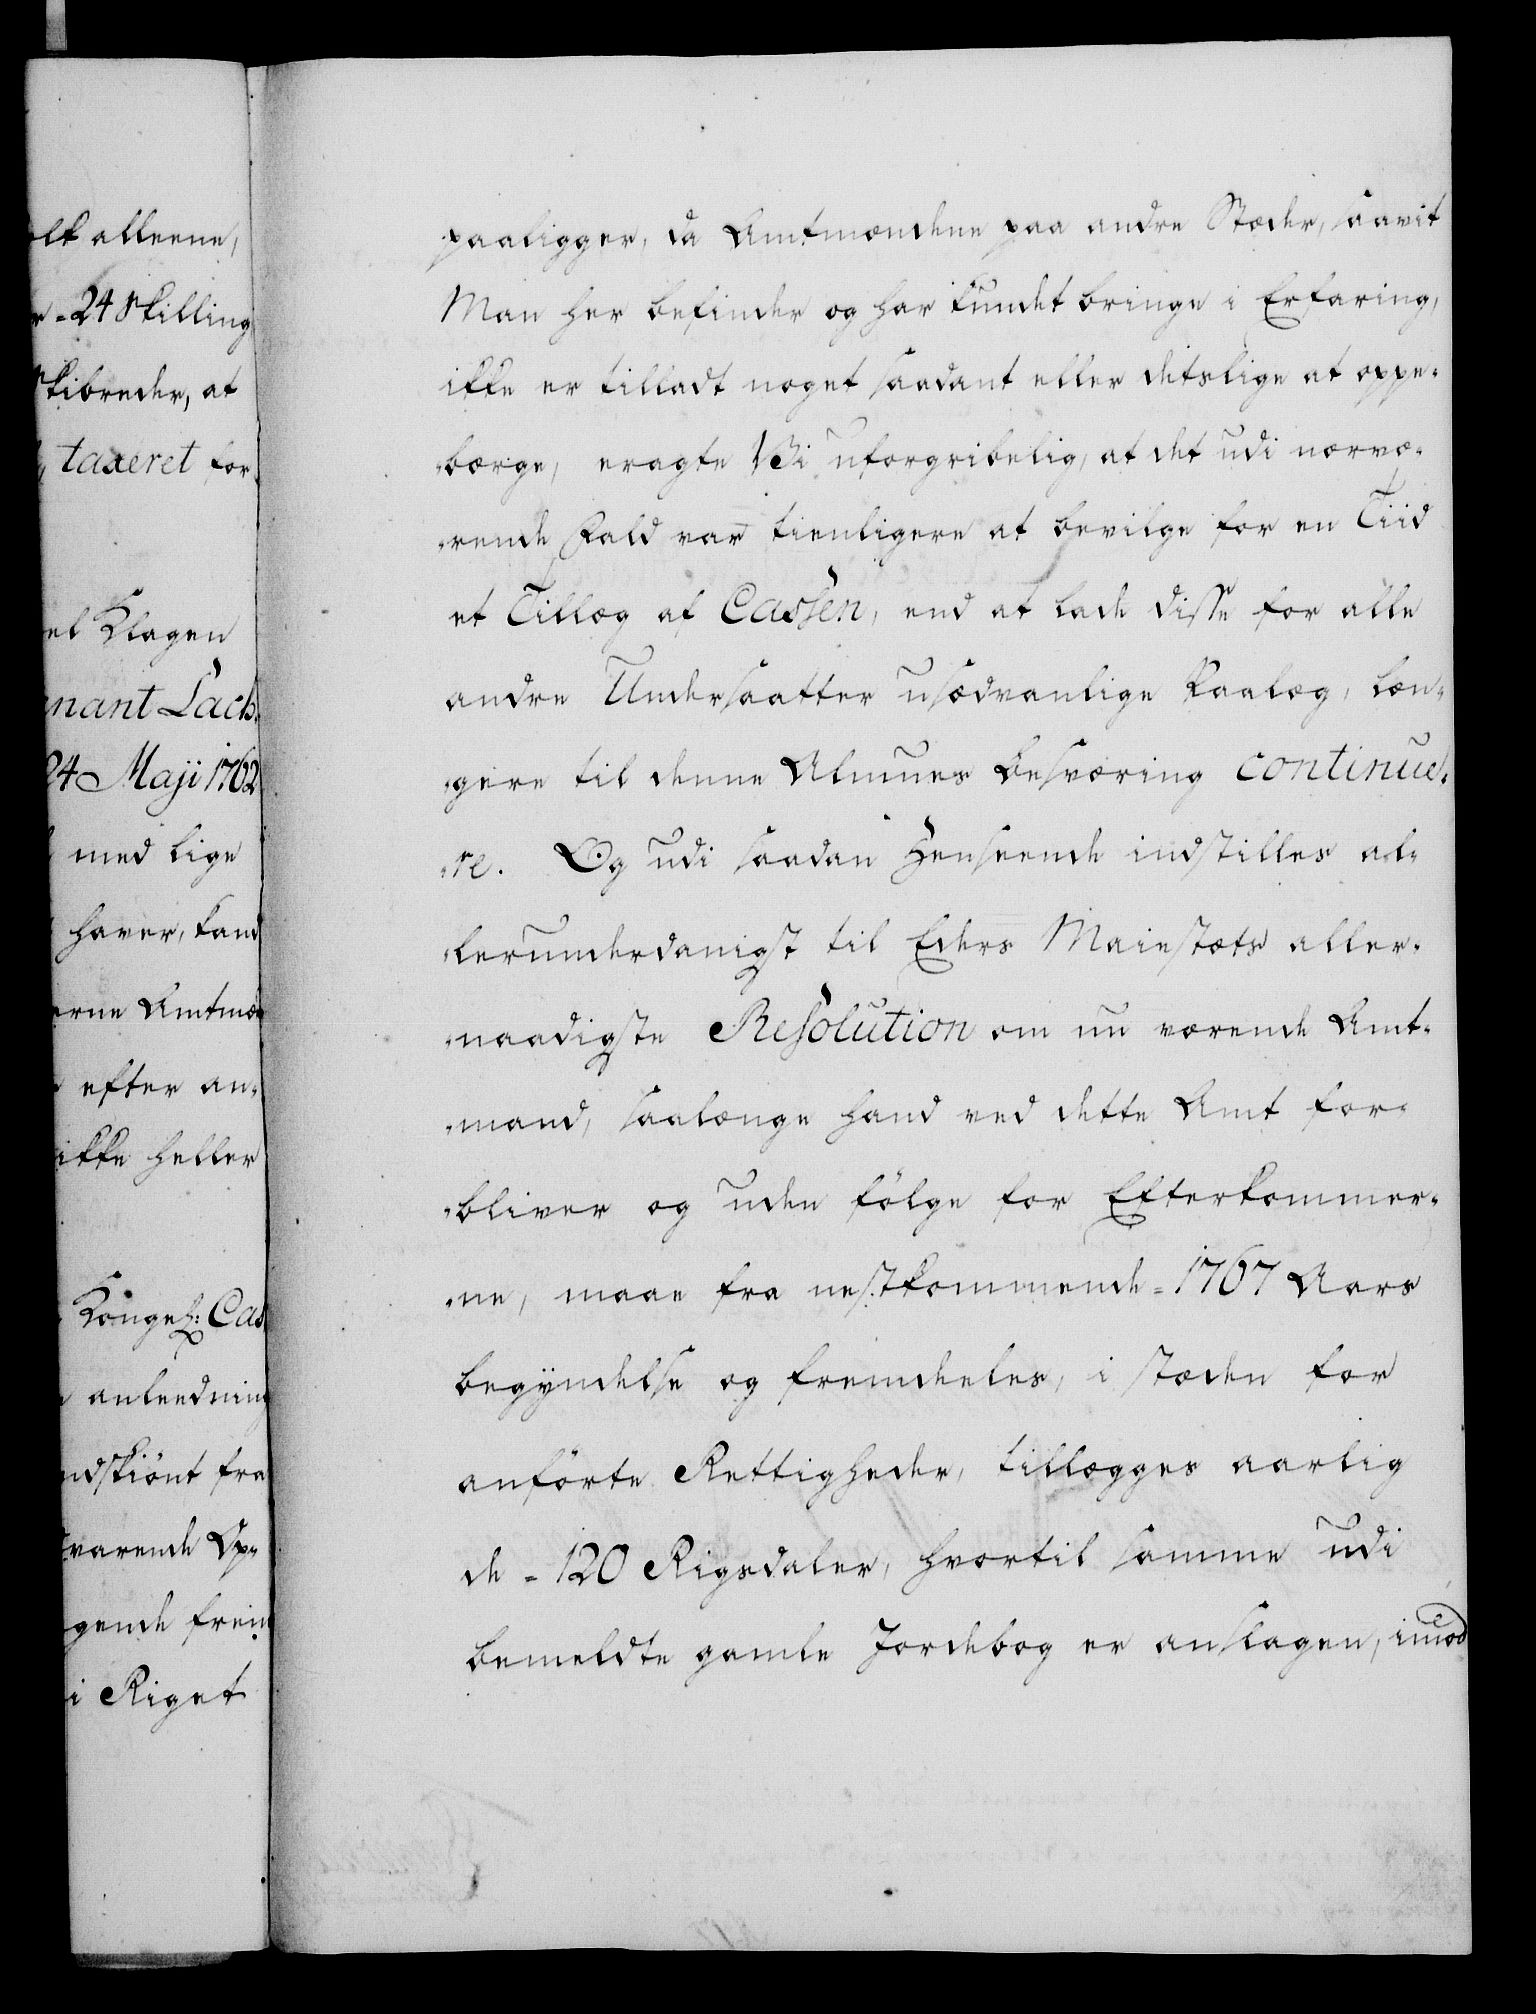 olk alleene,
r = 24 Skilling
Skibreder, at
taxeret for
el Klagen
nant Lach-
24 Maji 1762
med lige
haver, kand
erne Amtmæ
efter an-
ikke heller
Kongel: Cas
anleedning
ndskiönt fra
svarende Op-
gende frem
i Riget
paaligger, da Amtmændene paa andre Stæder, saavit
Man her befinder og har kundet bringe i Erfaring,
ikke er tilladt noget saadant eller detslige at oppe-
-bærge, eragte Vi uforgribelig, at det udi nærvæ-
-rende Fald var tienligere at bevilge for en Tiid
et Tillæg af Cassen, end at lade disse for alle
andre Undersaatter usædvanlige Paalæg, læn-
-gere til denne Almues Besværing continue-
-re. Og udi saadan Henseende indstilles al-
-lerunderdanigst til Eders Maiestæts aller-
-naadigste Resolution om nu værende Amt-
-mand, saalænge hand ved dette Amt for-
-bliver og uden fölge for Efterkommer-
-ne, maae fra nestkommende = 1767 Aars
begÿndelse og fremdeeles, i stæden for
anförte Rettigheder, tillægges aarlig
de = 120 Rigsdaler, hvortil samme udi
bemeldte gamle Jordebog er anslagen, imod